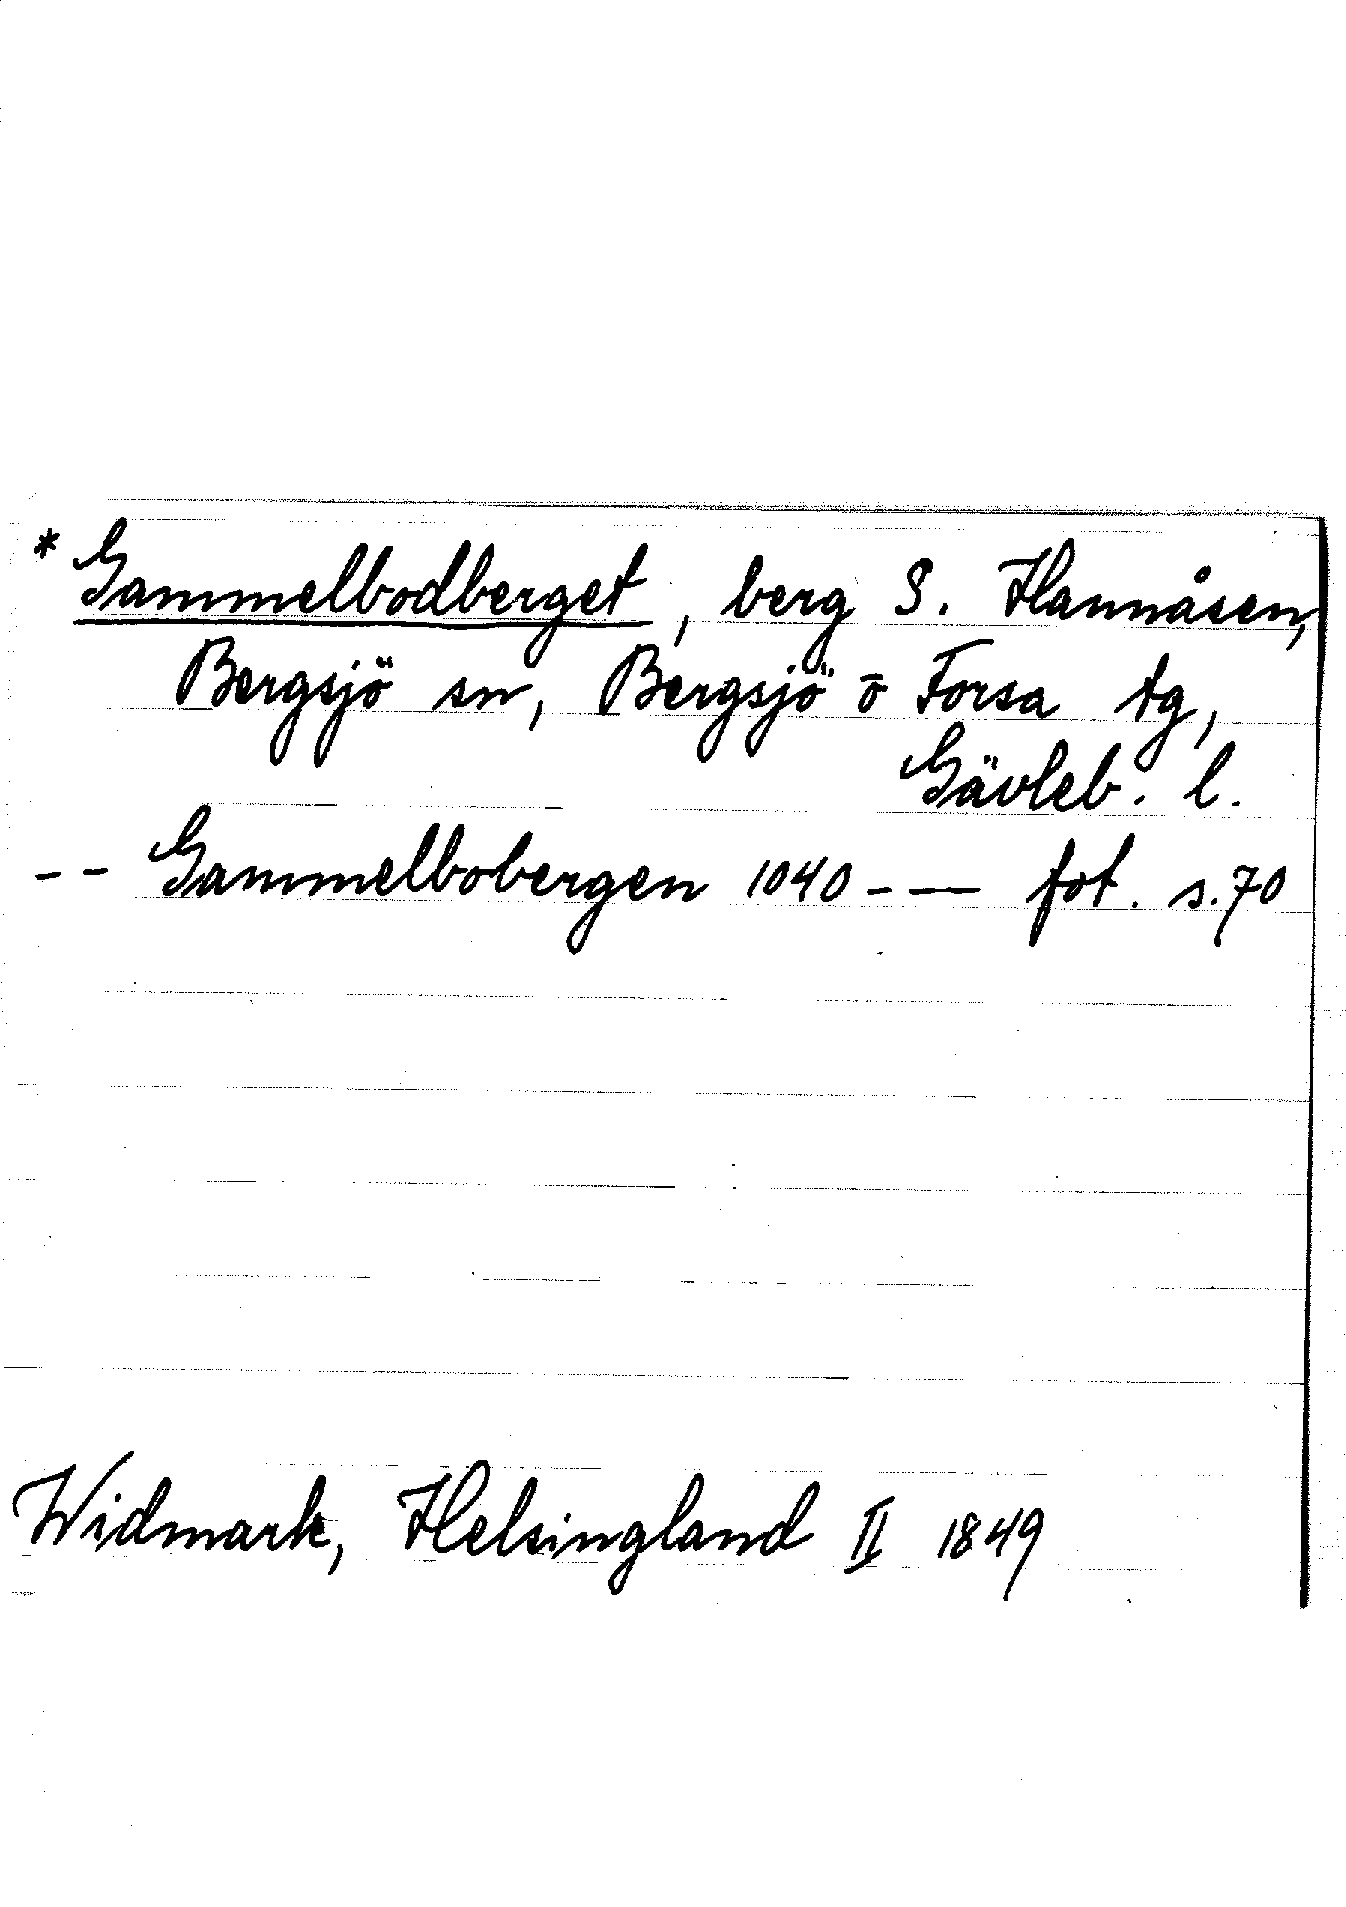 * Gammelbodberget, berg S. Hannåsen,
Bergsjö sn, Bergsjö o Forsa tg,
Gävleb. l.
-- Gammelbobergen 1040 - — fot. s. 70
Widmark, Helsingland II 1849